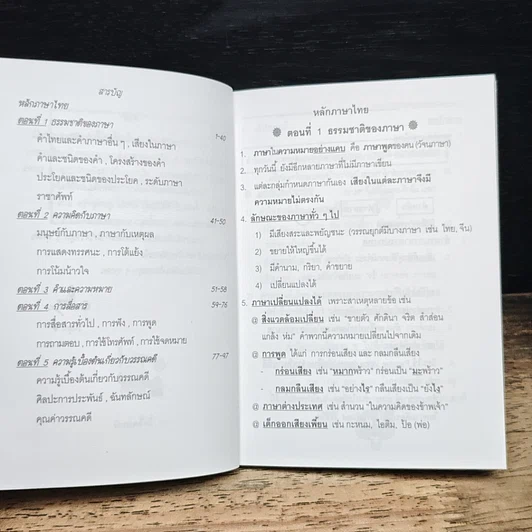 สารบัญ
หลักภาษาไทย
ตอนที่ 1 ธรรมชาติของภาษา 1-40
คำไทยและคำภาษาอื่น ๆ , เสียงในภาษา
คำและชนิดของคำ , โครงสร้างของคำ
ประโยคและชนิดของประโยค , ระดับภาษา
ราชาศัพท์
ตอนที่ 2 ความคิดกับภาษา 41-50
มนุษย์กับภาษา , ภาษากับเหตุผล
การแสดงทรรศนะ , การโต้แย้ง
การโน้มน้าวใจ
ตอนที่ 3 คำและความหมาย 51-58
ตอนที่ 4 การสื่อสาร 59-76
การสื่อสารทั่วไป , การฟัง , การพูด
การถามตอบ , การใช้โทรศัพท์ , การใช้จดหมาย
ตอนที่ 5 ความรู้เบื้องต้นเกี่ยวกับวรรณคดี 77-97
ความรู้เบื้องต้นเกี่ยวกับวรรณคดี
ศิลปะการประพันธ์ , ฉันทลักษณ์
คุณค่าวรรณคดี
หลักภาษาไทย
ตอนที่ 1 ธรรมชาติของภาษา
1. ภาษาในความหมายอย่างแคบ คือ ภาษาพูดของคน (วัจนภาษา)
2. ทุกวันนี้ ยังมีอีกหลายภาษาที่ไม่มีภาษาเขียน
3. แต่ละกลุ่มกำหนดภาษากันเอง เสียงในแต่ละภาษาจึงมี
ความหมายไม่ตรงกัน
4. ลักษณะของภาษาทั่ว ๆ ไป
1) มีเสียงสระและพยัญชนะ (วรรณยุกต์มีบางภาษา เช่น ไทย, จีน)
2) ขยายให้ใหญ่ขึ้นได้
3) มีคำนาม, กริยา, คำขยาย
4) เปลี่ยนแปลงได้
5. ภาษาเปลี่ยนแปลงได้ เพราะสาเหตุหลายข้อ เช่น
@ สิ่งแวดล้อมเปลี่ยน เช่น "ขายตัว ศักดินา จริต สำส่อน
แกล้ง ห่ม" คำพวกนี้ความหมายเปลี่ยนไปจากเดิม
@ การพูด ได้แก่ การกร่อนเสียง และ กลมกลืนเสียง
- กร่อนเสียง เช่น "หมากพร้าว" กร่อนเป็น "มะพร้าว"
- กลมกลืนเสียง เช่น "อย่างไร" กลืนเสียงเป็น "ยังไง"
@ ภาษาต่างประเทศ เช่น สำนวน "ในความคิดของข้าพเจ้า"
@ เด็กออกเสียงเพี้ยน เช่น กะหนม, ไอติม, ป้อ (พ่อ)